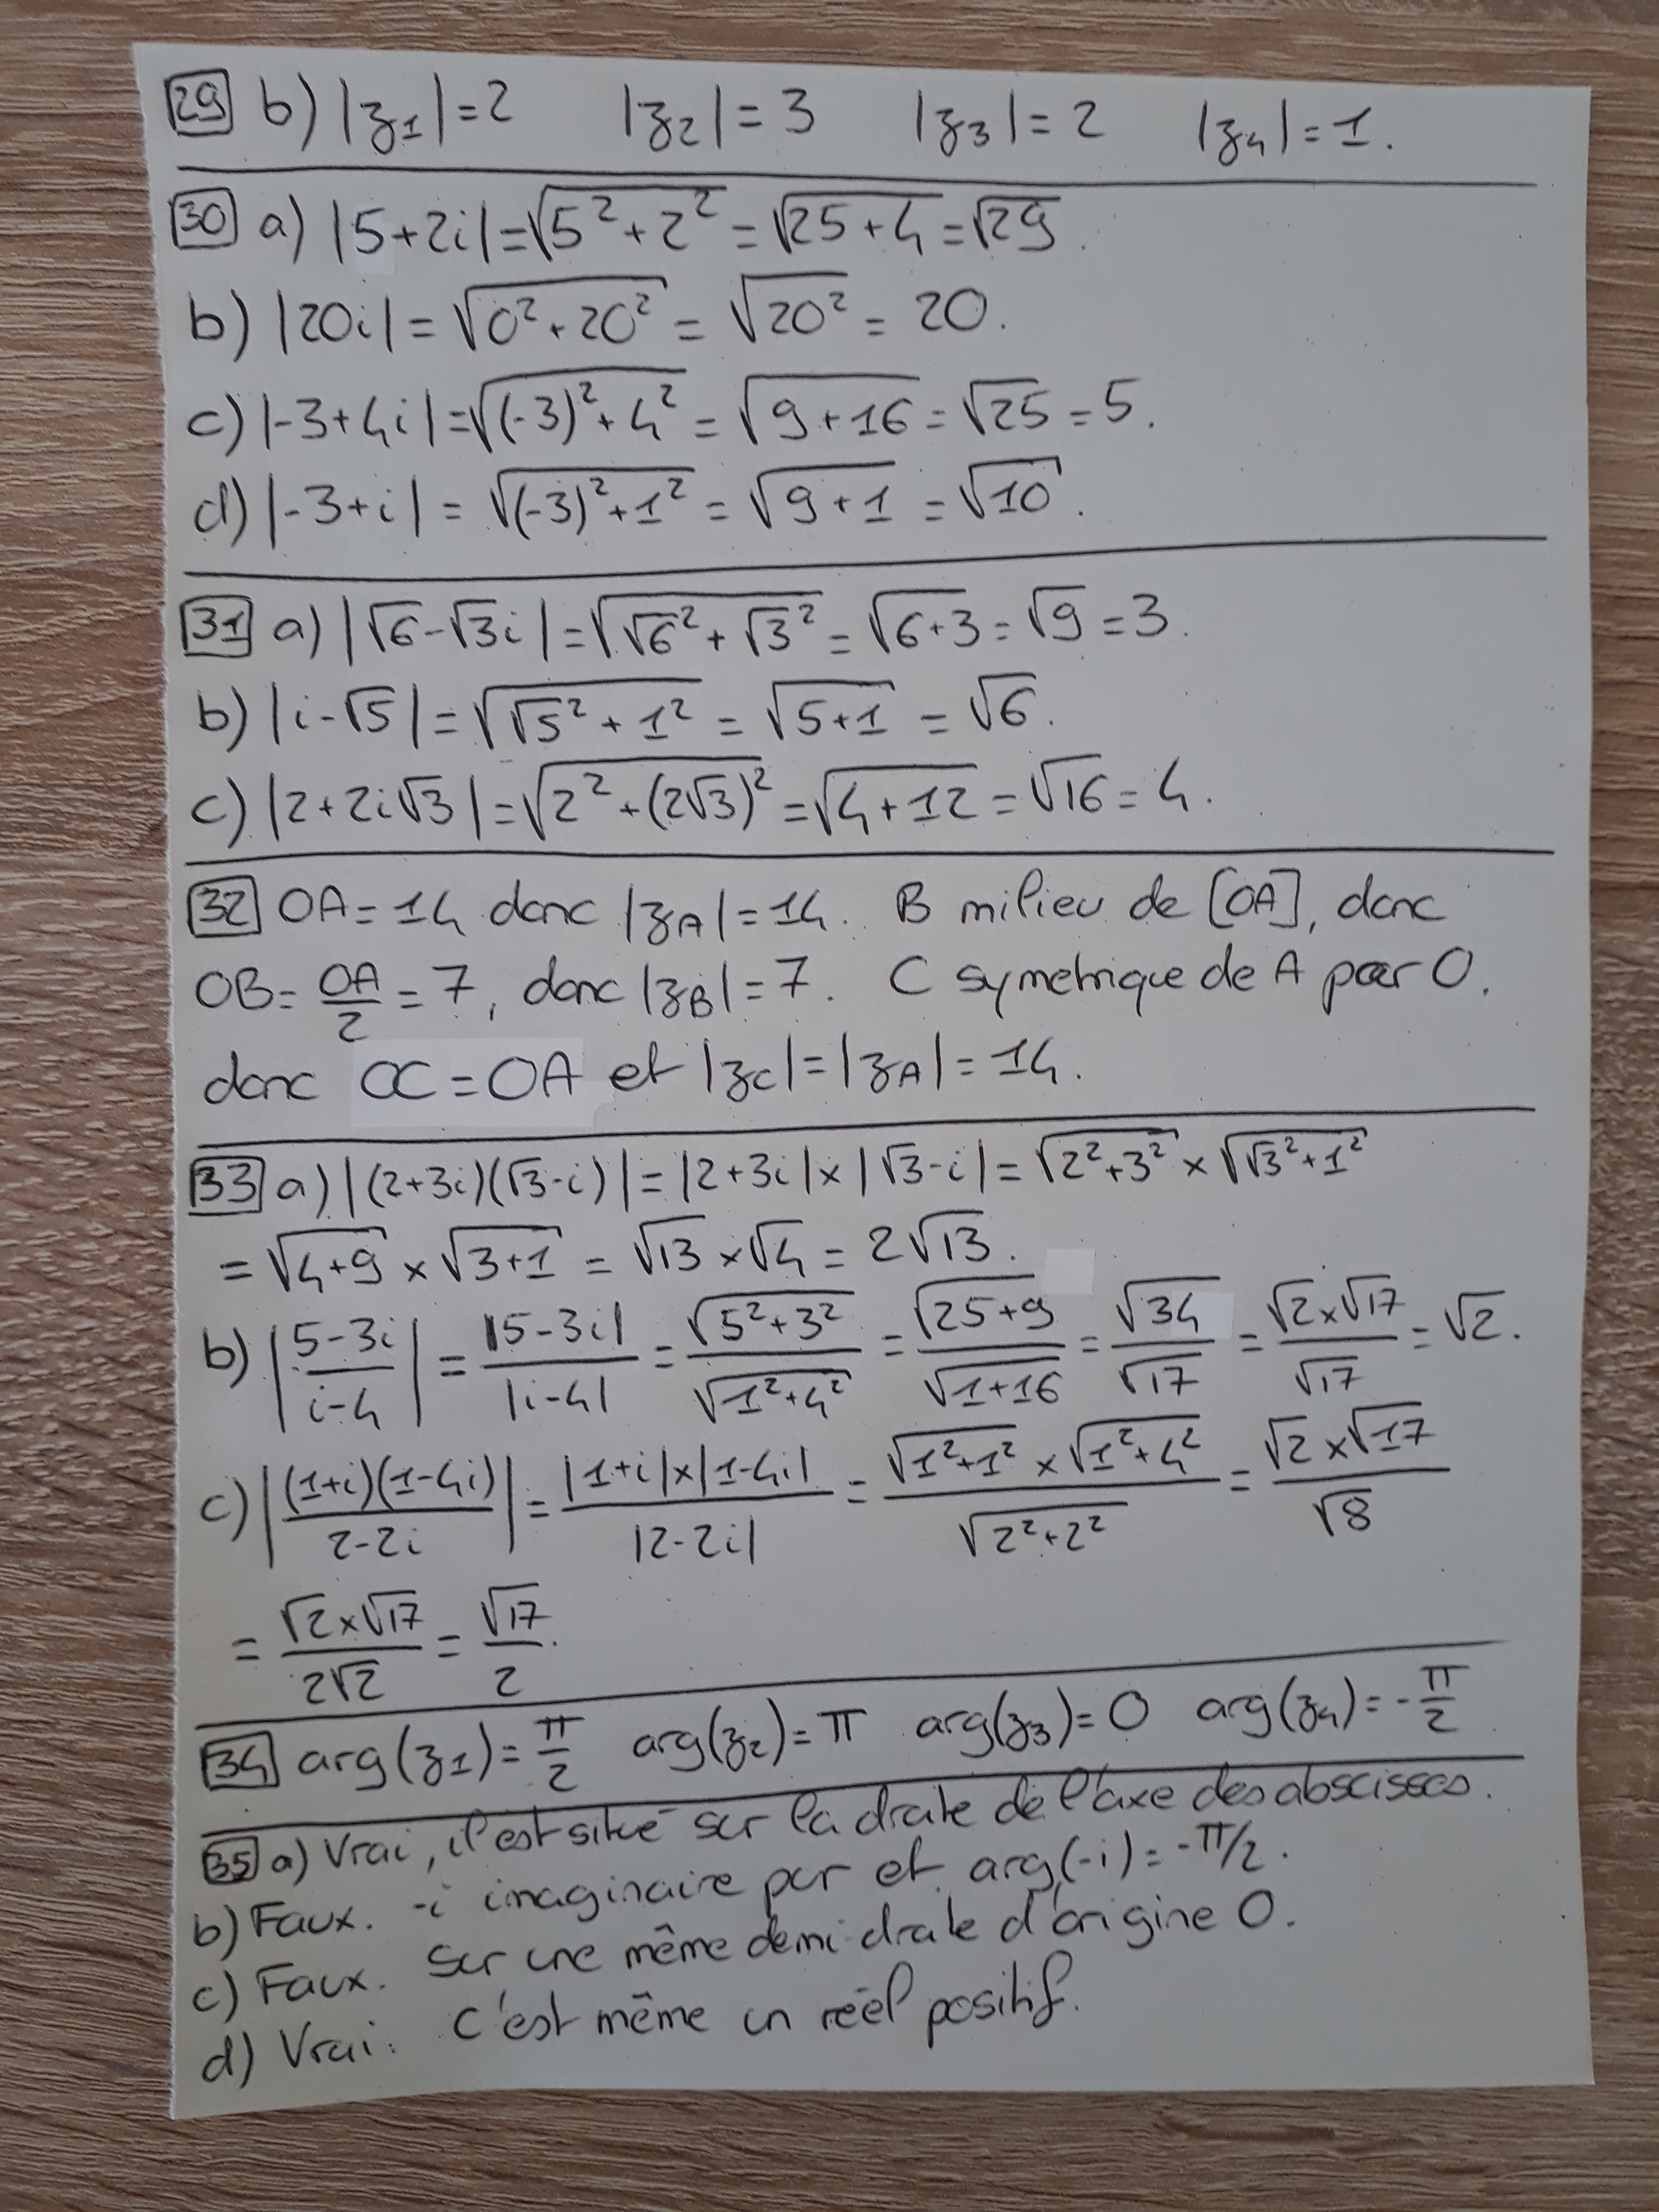 29 b) |z₁| = 2 |z₂| = 3 |z₃| = 2 |z₄| = 1.
30 a) |5+2i| = √(5²+2²) = √(25+4) = √29.
b) |20i| = √(0²+20²) = √(20²) = 20.
c) |-3+4i| = √((-3)²+4²) = √(9+16) = √25 = 5.
d) |-3+i| = √((-3)²+1²) = √(9+1) = √10.
31 a) |√6-√3i| = √(√6²+√3²) = √(6+3) = √9 = 3.
b) |i-√5| = √(√5²+1²) = √(5+1) = √6.
c) |2+2i√3| = √(2²+(2√3)²) = √(4+12) = √16 = 4.
32 OA = 14 donc |z_A| = 14. B milieu de [OA], donc
OB = OA/2 = 7, donc |z_B| = 7. C symetrique de A par O.
donc OC = OA et |z_C| = |z_A| = 14.
33 a) |(2+3i)(√3-i)| = |2+3i| × |√3-i| = √(2²+3²) × √(√3²+1²)
= √(4+9) × √(3+1) = √13 × √4 = 2√13.
b) |(5-3i)/(i-4)| = |5-3i|/|i-4| = √(5²+3²)/√(1²+4²) = √(25+9)/√(1+16) = √34/√17 = (√2×√17)/√17 = √2.
c) |((1+i)(1-4i))/(2-2i)| = (|1+i|×|1-4i|)/|2-2i| = (√(1²+1²) × √(1²+4²))/√(2²+2²) = (√2×√17)/√8
= (√2×√17)/(2√2) = √17/2.
34 arg(z₁) = π/2 arg(z₂) = π arg(z₃) = 0 arg(z₄) = -π/2
35 a) Vrai, il est situé sur la droite de l'axe des abscisses.
b) Faux. -i imaginaire pur et arg(-i) = -π/2.
c) Faux. Sur une même demi-droite d'origine O.
d) Vrai. C'est même un réel positif.